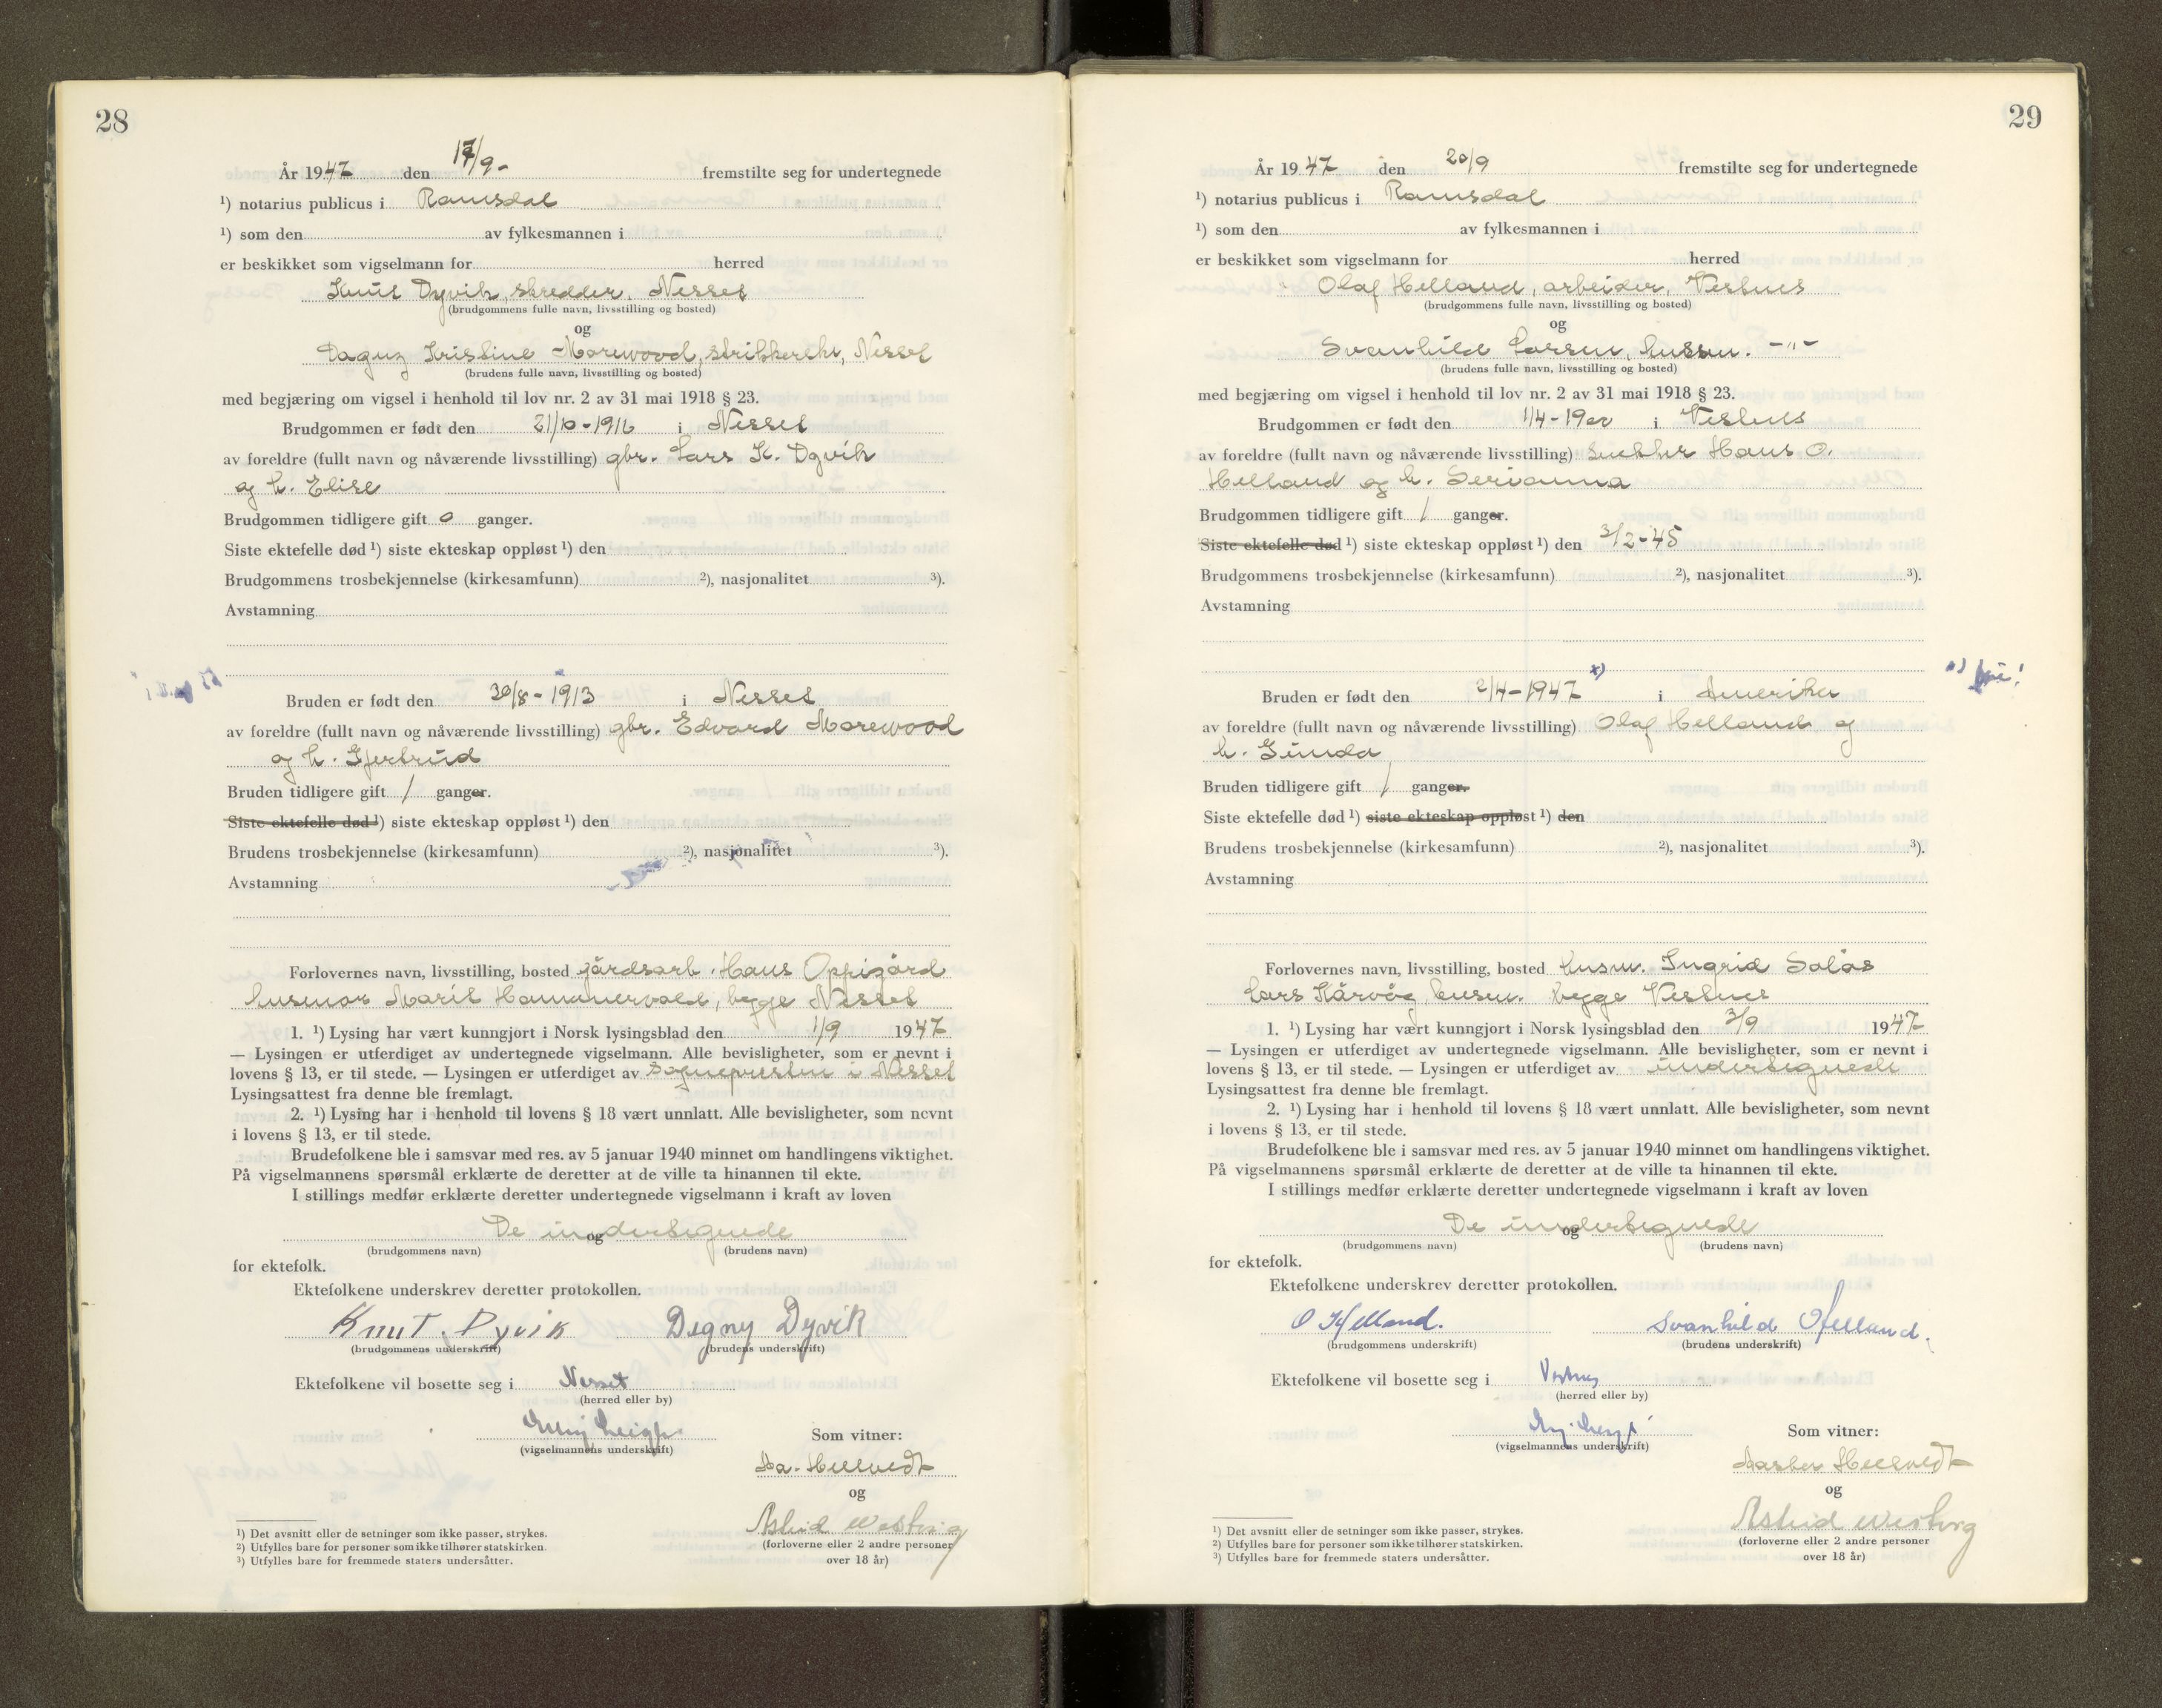 28
År 1947 den 17/9- fremstilte seg for undertegnede
¹) notarius publicus i Romsdal
¹) som den av fylkesmannen i
er beskikket som vigselmann for herred
Knut Dyvik, skredder, Nesset
(brudgommens fulle navn, livsstilling og bosted)
og
Dagny Kristine Morewood, strikkerske, Nesset
(brudens fulle navn, livsstilling og bosted)
med begjæring om vigsel i henhold til lov nr. 2 av 31 mai 1918 § 23.
Brudgommen er født den 21/10-1916 i Nesset
av foreldre (fullt navn og nåværende livsstilling) gbr. Lars K. Dyvik
og h. Elise
Brudgommen tidligere gift 0 ganger.
Siste ektefelle død ¹) siste ekteskap oppløst ¹) den
Brudgommens trosbekjennelse (kirkesamfunn) ²), nasjonalitet ³).
Avstamning
Bruden er født den 30/8-1913 i Nesset
av foreldre (fullt navn og nåværende livsstilling) gbr. Edvard Morewood
og h. Gjertrud
Bruden tidligere gift 1 ganger.
Siste ektefelle død ¹) siste ekteskap oppløst ¹) den
Brudens trosbekjennelse (kirkesamfunn) ²), nasjonalitet ³).
Avstamning
Forlovernes navn, livsstilling, bosted gårdsarb. Hans Oppigård
husmor Marit Hammervold, begge Nesset
1. ¹) Lysing har vært kunngjort i Norsk lysingsblad den 1/9 1947
— Lysingen er utferdiget av undertegnede vigselmann. Alle bevisligheter, som er nevnt i
lovens § 13, er til stede. — Lysingen er utferdiget av sognepresten i Nesset
Lysingsattest fra denne ble fremlagt.
2. ¹) Lysing har i henhold til lovens § 18 vært unnlatt. Alle bevisligheter, som nevnt
i lovens § 13, er til stede.
Brudefolkene ble i samsvar med res. av 5 januar 1940 minnet om handlingens viktighet.
På vigselmannens spørsmål erklærte de deretter at de ville ta hinannen til ekte.
I stillings medfør erklærte deretter undertegnede vigselmann i kraft av loven
De undertegnede
og
(brudgommens navn) (brudens navn)
for ektefolk.
Ektefolkene underskrev deretter protokollen.
Knut Dyvik Dagny Dyvik
(brudgommens underskrift) (brudens underskrift)
Ektefolkene vil bosette seg i Nesset
(herred eller by)
(vigselmannens underskrift)
Som vitner:
Aa. Hellvedt
og
Astrid Westvig
(forloverne eller 2 andre personer
over 18 år)
¹) Det avsnitt eller de setninger som ikke passer, strykes.
²) Utfylles bare for personer som ikke tilhører statskirken.
³) Utfylles bare for fremmede staters undersåtter.
29
År 1947 den 20/9 fremstilte seg for undertegnede
¹) notarius publicus i Romsdal
¹) som den av fylkesmannen i
er beskikket som vigselmann for herred
Olaf Helland, arbeider, Vestnes
(brudgommens fulle navn, livsstilling og bosted)
og
Svanhild Larsen, husm. -"-
(brudens fulle navn, livsstilling og bosted)
med begjæring om vigsel i henhold til lov nr. 2 av 31 mai 1918 § 23.
Brudgommen er født den 1/4-1902 i Vestnes
av foreldre (fullt navn og nåværende livsstilling) snekker Hans O.
Helland og h. Serianna
Brudgommen tidligere gift 1 ganger.
Siste ektefelle død ¹) siste ekteskap oppløst ¹) den 3/2-45
Brudgommens trosbekjennelse (kirkesamfunn) ²), nasjonalitet ³).
Avstamning
Bruden er født den 2/4-1947 x) i Amerika
av foreldre (fullt navn og nåværende livsstilling) Olaf Helland og
h. Ginda
Bruden tidligere gift 1 ganger.
Siste ektefelle død ¹) siste ekteskap oppløst ¹) den
Brudens trosbekjennelse (kirkesamfunn) ²), nasjonalitet ³).
Avstamning
Forlovernes navn, livsstilling, bosted husm. Ingrid Solås
Lars Kårvåg, husm. begge Vestnes
1. ¹) Lysing har vært kunngjort i Norsk lysingsblad den 3/9 1947
— Lysingen er utferdiget av undertegnede vigselmann. Alle bevisligheter, som er nevnt i
lovens § 13, er til stede. — Lysingen er utferdiget av undertegnede
Lysingsattest fra denne ble fremlagt.
2. ¹) Lysing har i henhold til lovens § 18 vært unnlatt. Alle bevisligheter, som nevnt
i lovens § 13, er til stede.
Brudefolkene ble i samsvar med res. av 5 januar 1940 minnet om handlingens viktighet.
På vigselmannens spørsmål erklærte de deretter at de ville ta hinannen til ekte.
I stillings medfør erklærte deretter undertegnede vigselmann i kraft av loven
De undertegnede
og
(brudgommens navn) (brudens navn)
for ektefolk.
Ektefolkene underskrev deretter protokollen.
O Helland. Svanhild Helland.
(brudgommens underskrift) (brudens underskrift)
Ektefolkene vil bosette seg i Vestnes
(herred eller by)
(vigselmannens underskrift)
Som vitner:
Hellvedt
og
Astrid Westvig
(forloverne eller 2 andre personer
over 18 år)
¹) Det avsnitt eller de setninger som ikke passer, strykes.
²) Utfylles bare for personer som ikke tilhører statskirken.
³) Utfylles bare for fremmede staters undersåtter.